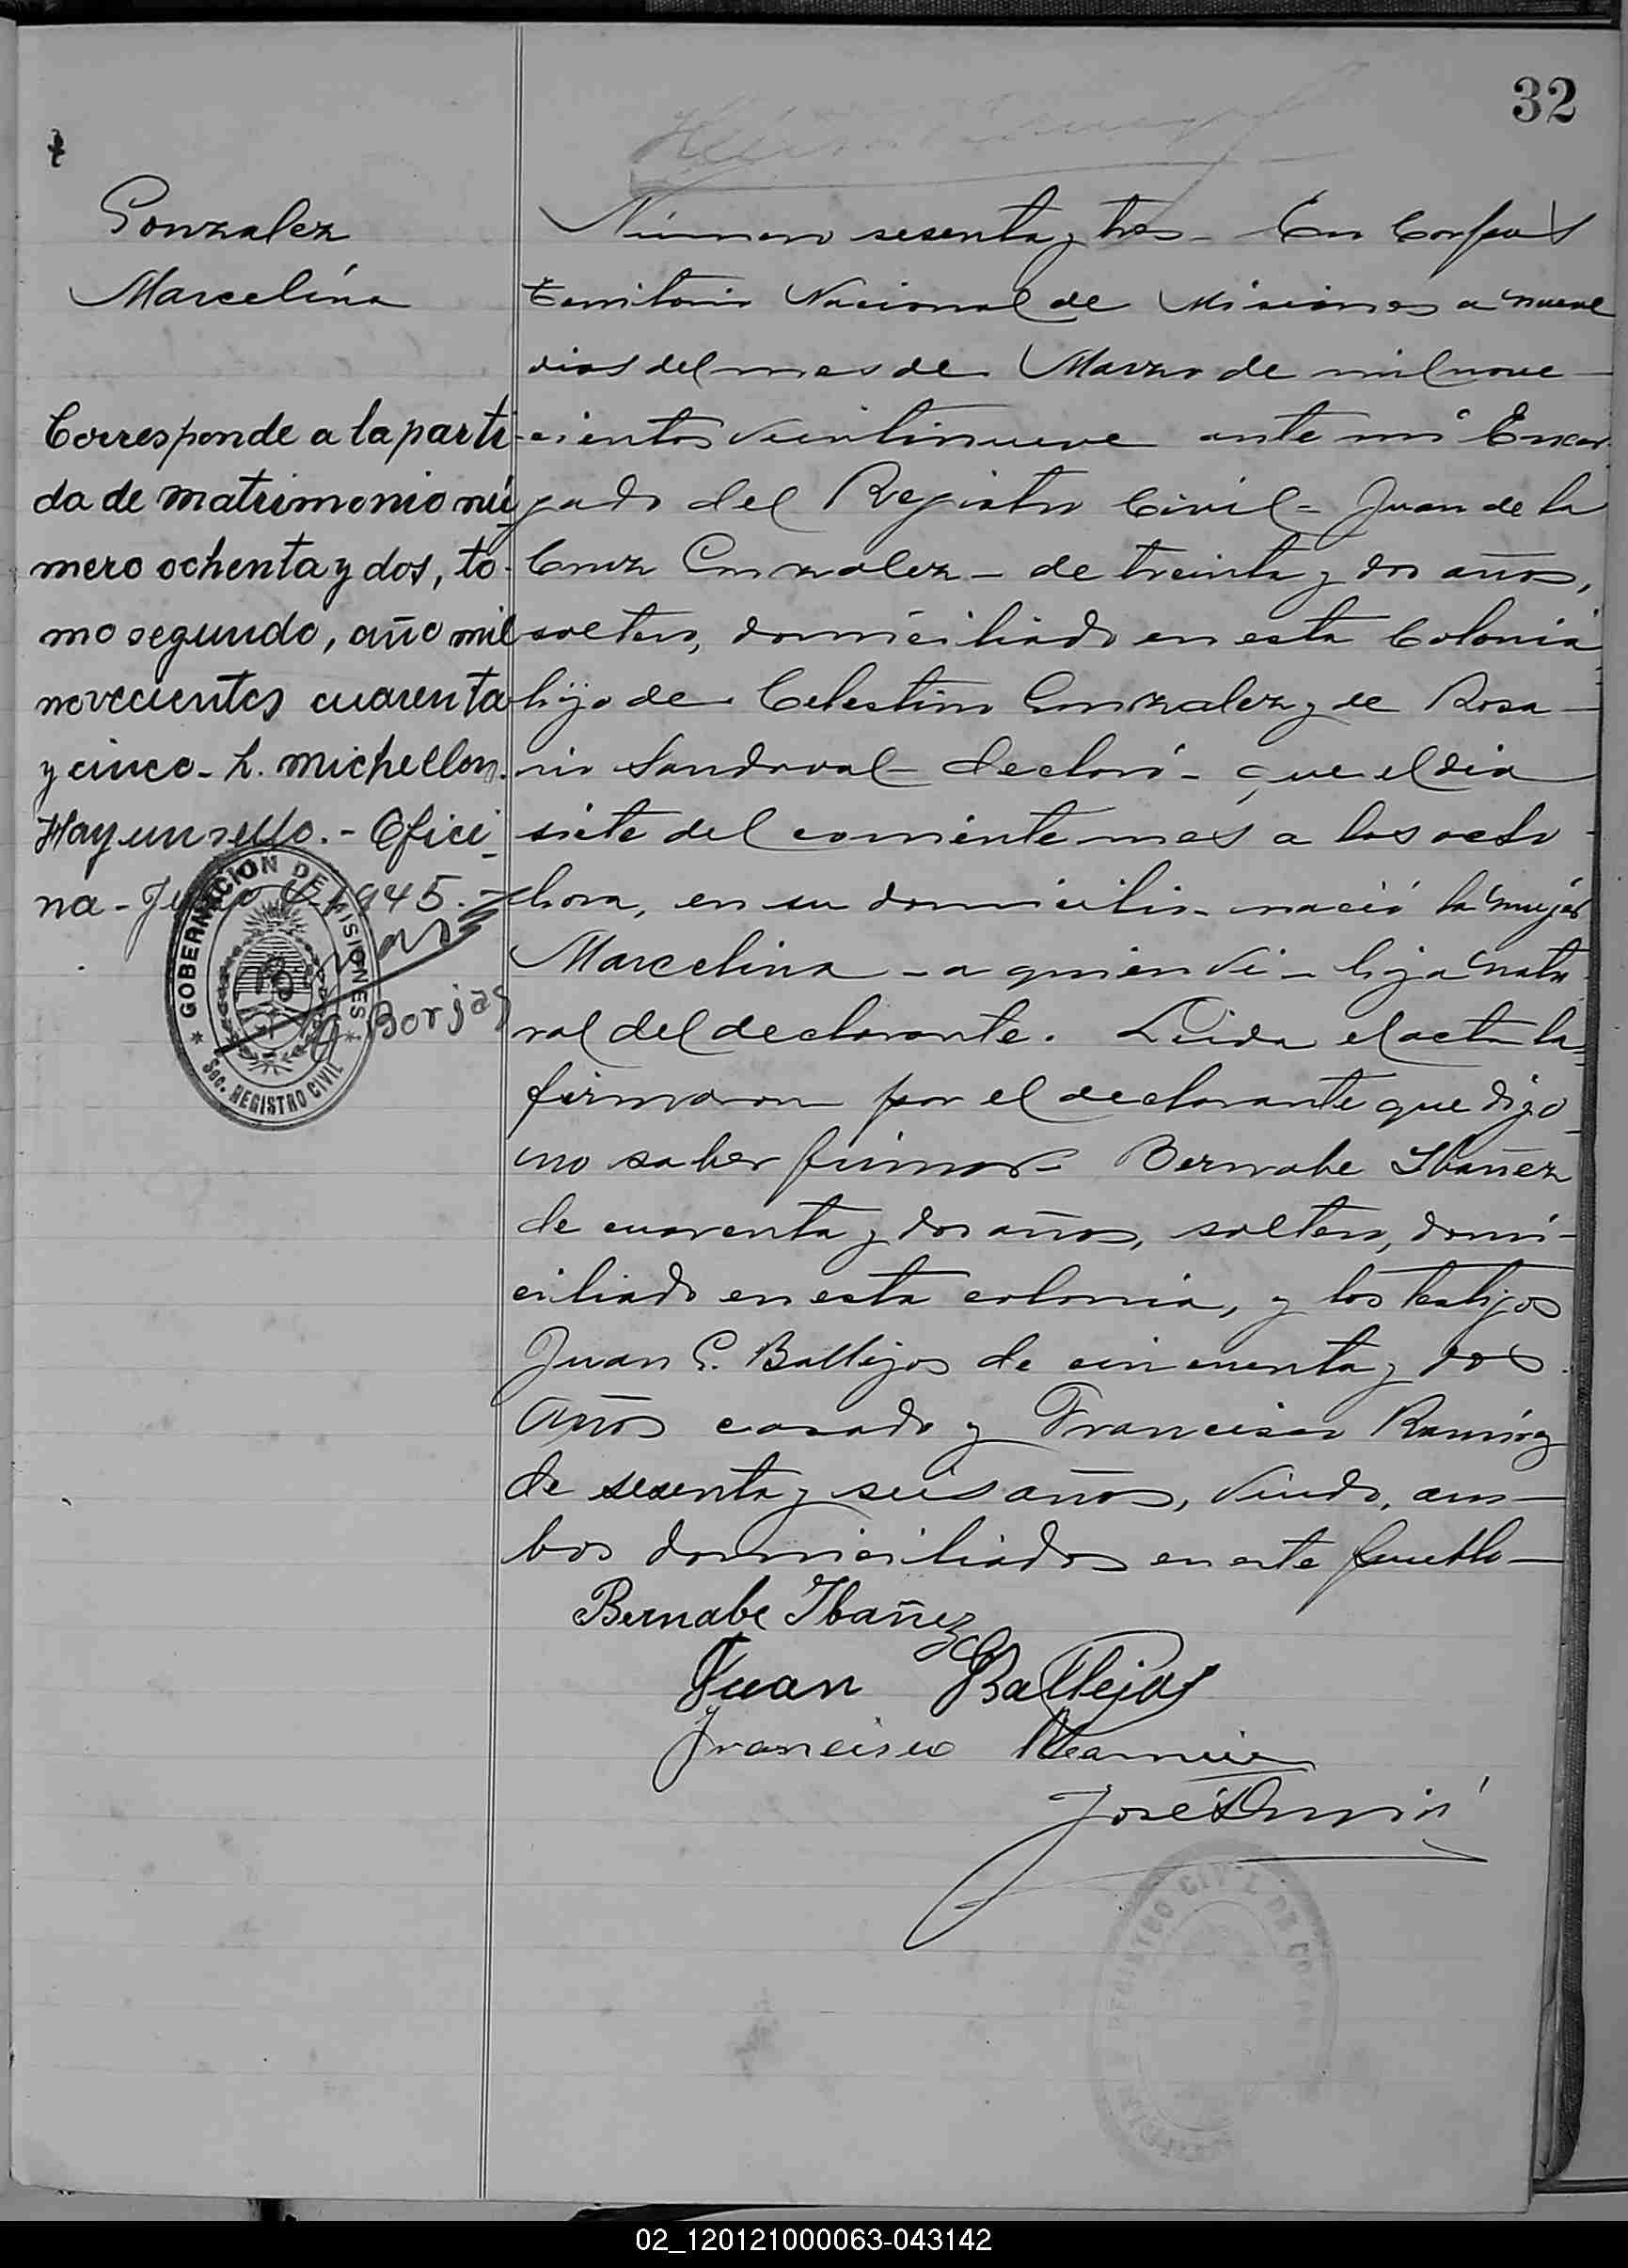 32
Gonzalez
Marcelina
Corresponde a la parti-
da de matrimonio nú-
mero ochenta y dos, to-
mo segundo, año mil
novecientos cuarenta
y cinco - L. Michellon.
Hay un sello. - Ofici-
na - 1945. -
Borjas
GOBERNACION DE MISIONES
Sec. REGISTRO CIVIL
Número sesenta y tres - En Corpus
Territorio Nacional de Misiones a nueve
dias del mes de Marzo de mil nove-
cientos veintinueve ante mi Encar-
gado del Registro Civil - Juan de la
Cruz Gonzalez - de treinta y dos años,
soltero, domiciliado en esta Colonia
hijo de Celestino Gonzalez y de Rosa-
rio Sandoval - declaró - que el dia
siete del corriente mes a las ocho
hora, en su domicilio - nació la mujer
Marcelina - a quien vi - hija natu-
ral del declarante. Leida el acta la
firmaron por el declarante que dijo
no saber firmar - Bernabe Ibañez
de cuarenta y dos años, soltero, domi-
ciliado en esta colonia, y los testigos
Juan G. Ballejos de cincuenta y dos
años casado y Francisco Ramírez
de sesenta y seis años, viudo, am-
bos domiciliados en este pueblo -
Bernabe Ibañez
Juan G Ballejos
Francisco Ramirez
José
REGISTRO CIVIL DE
02_120121000063-043142